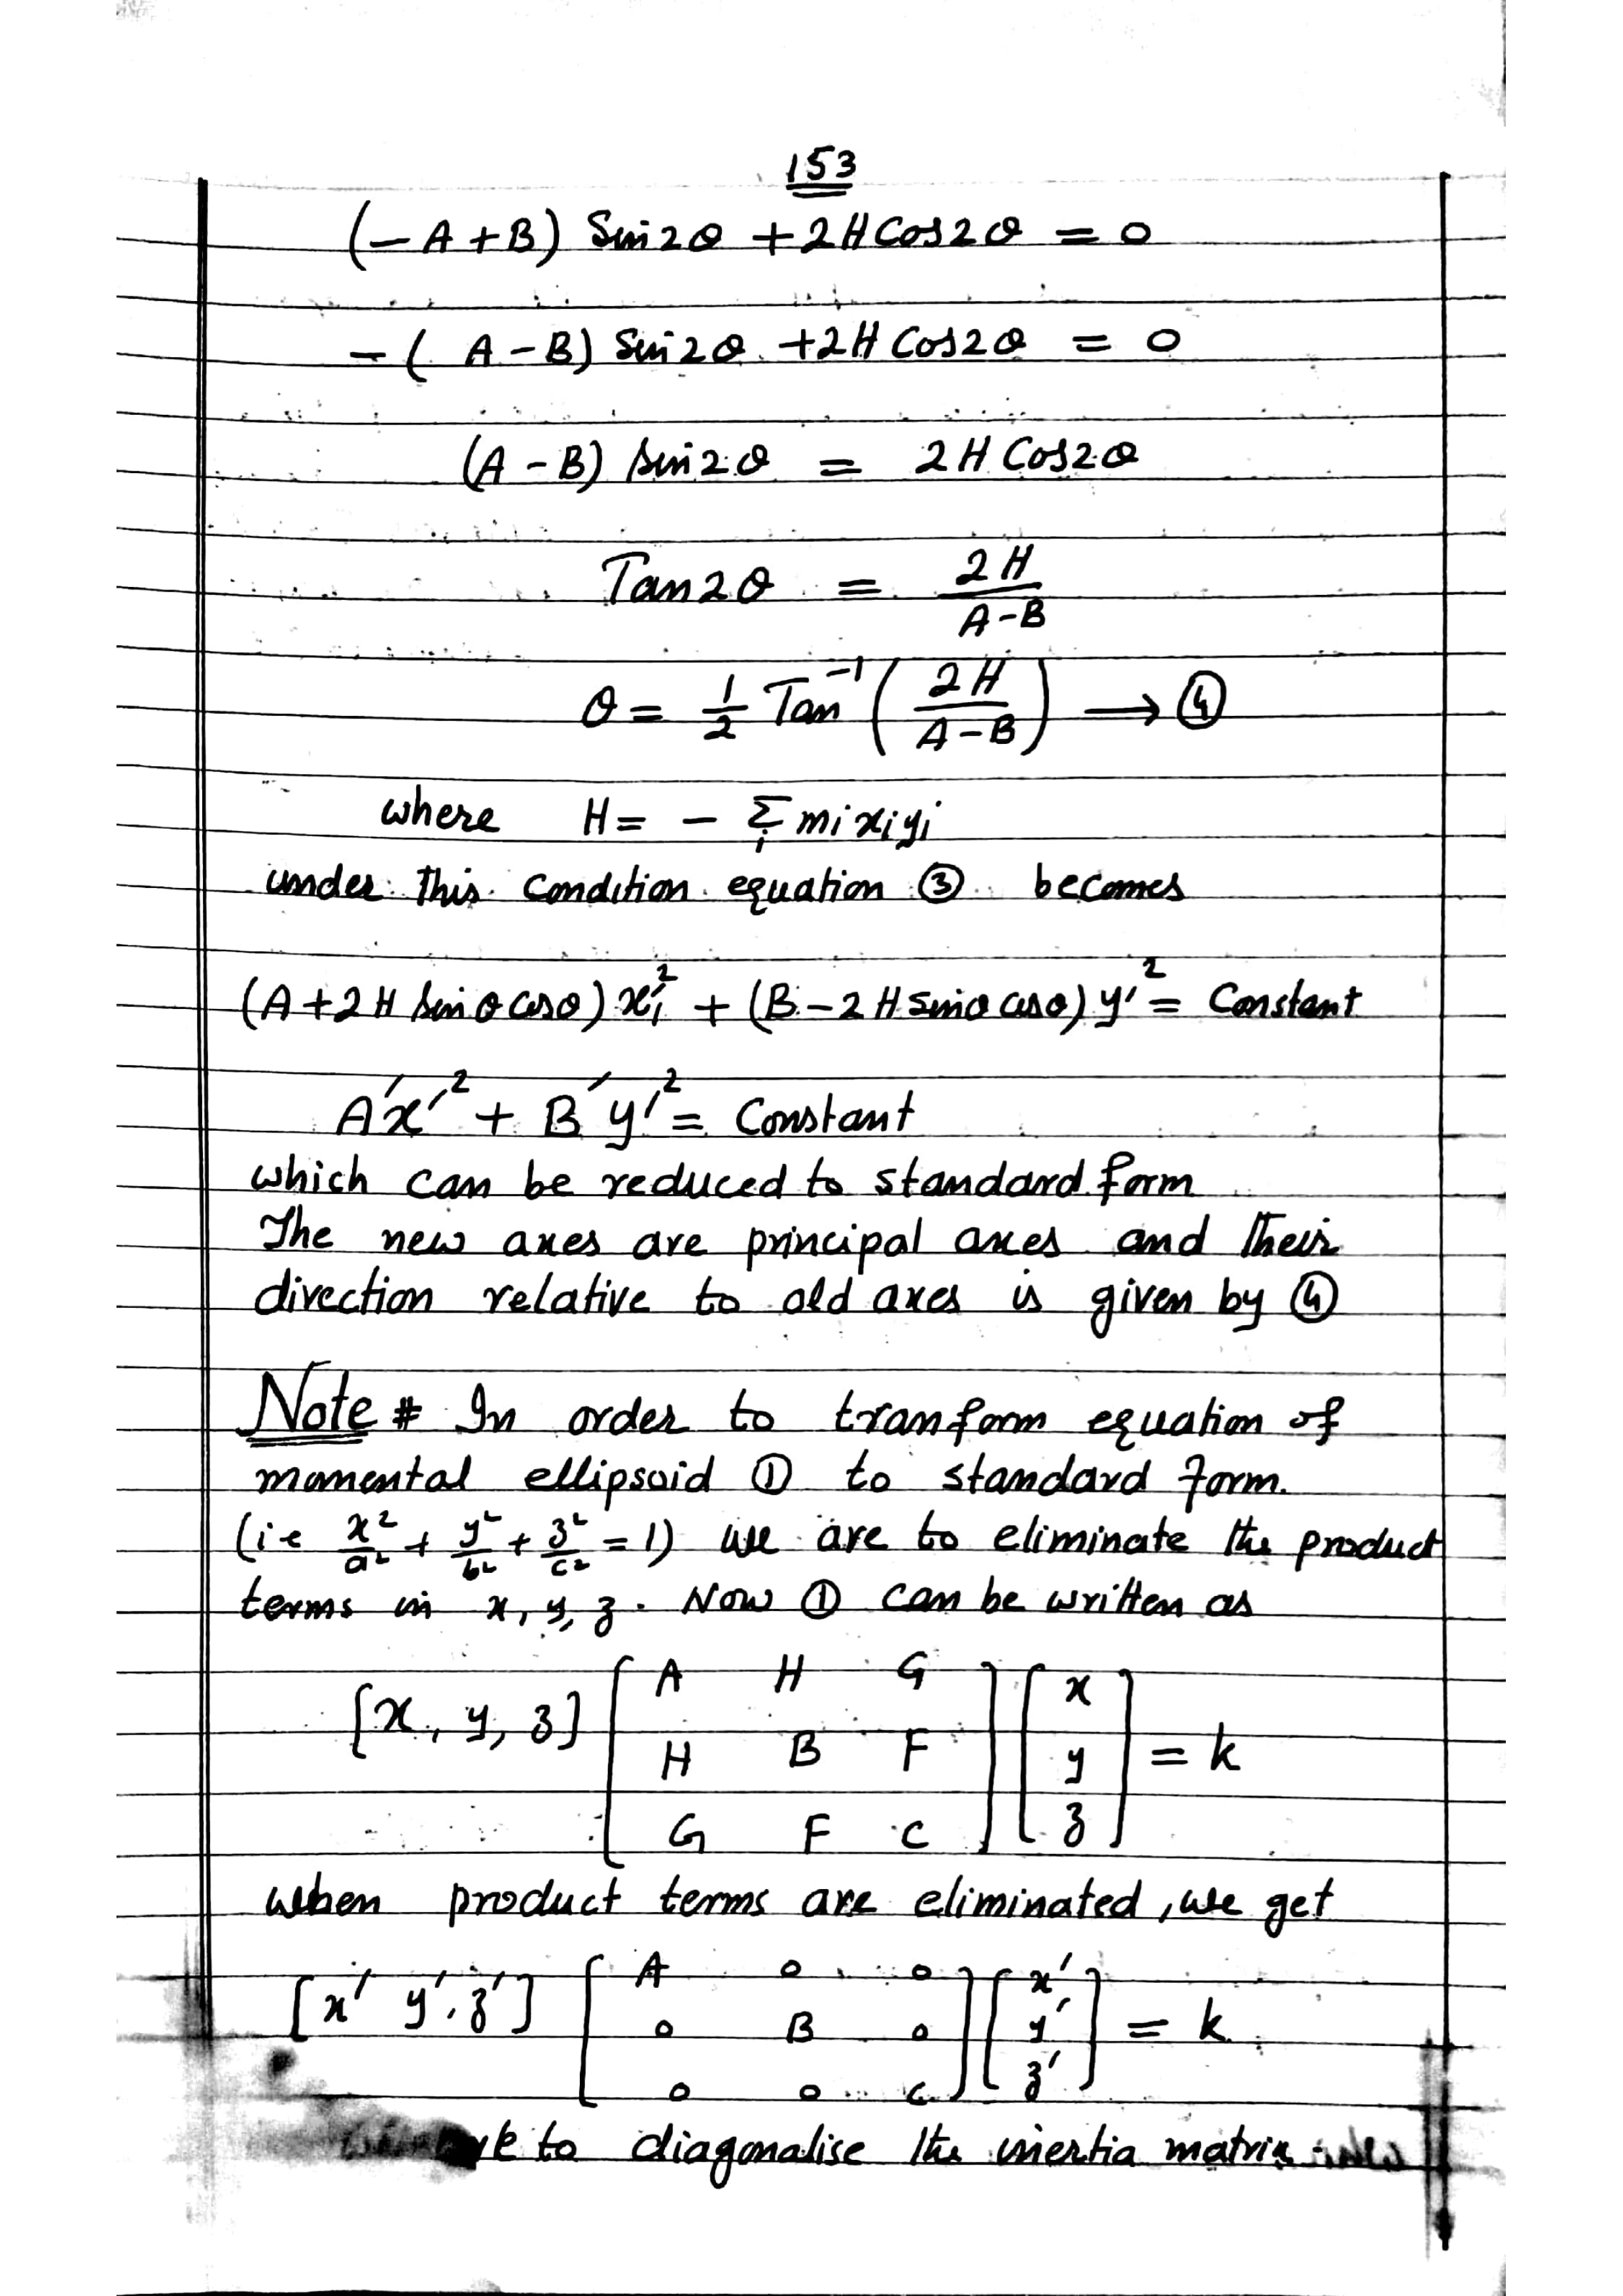 153
(-A+B) Sin2θ + 2H Cos2θ = 0
-(A-B) Sin2θ + 2H Cos2θ = 0
(A-B) Sin2θ = 2H Cos2θ
Tan2θ = 2H / A-B
θ = 1/2 Tan⁻¹ (2H / A-B) → ④
where H = - Σ mi xi yi
under This Condition equation ③ becomes
(A+2H Sinθ cosθ) x'₁² + (B-2H Sinθ cosθ) y'² = Constant
A'x'² + B'y'² = Constant
which can be reduced to standard form
The new axes are principal axes and their
direction relative to old axes is given by ④
Note # In order to tranform equation of
momental ellipsoid ① to standard form.
(i.e x²/a² + y²/b² + z²/c² = 1) we are to eliminate the product
terms in x, y, z. Now ① can be written as
[x, y, z] [A H G] [x]
[H B F] [y] = k
[G F C] [z]
when product terms are eliminated, we get
[x' y' z'] [A 0 0] [x']
[0 B 0] [y'] = k
[0 0 C] [z']
to diagonalise the inertia matrix